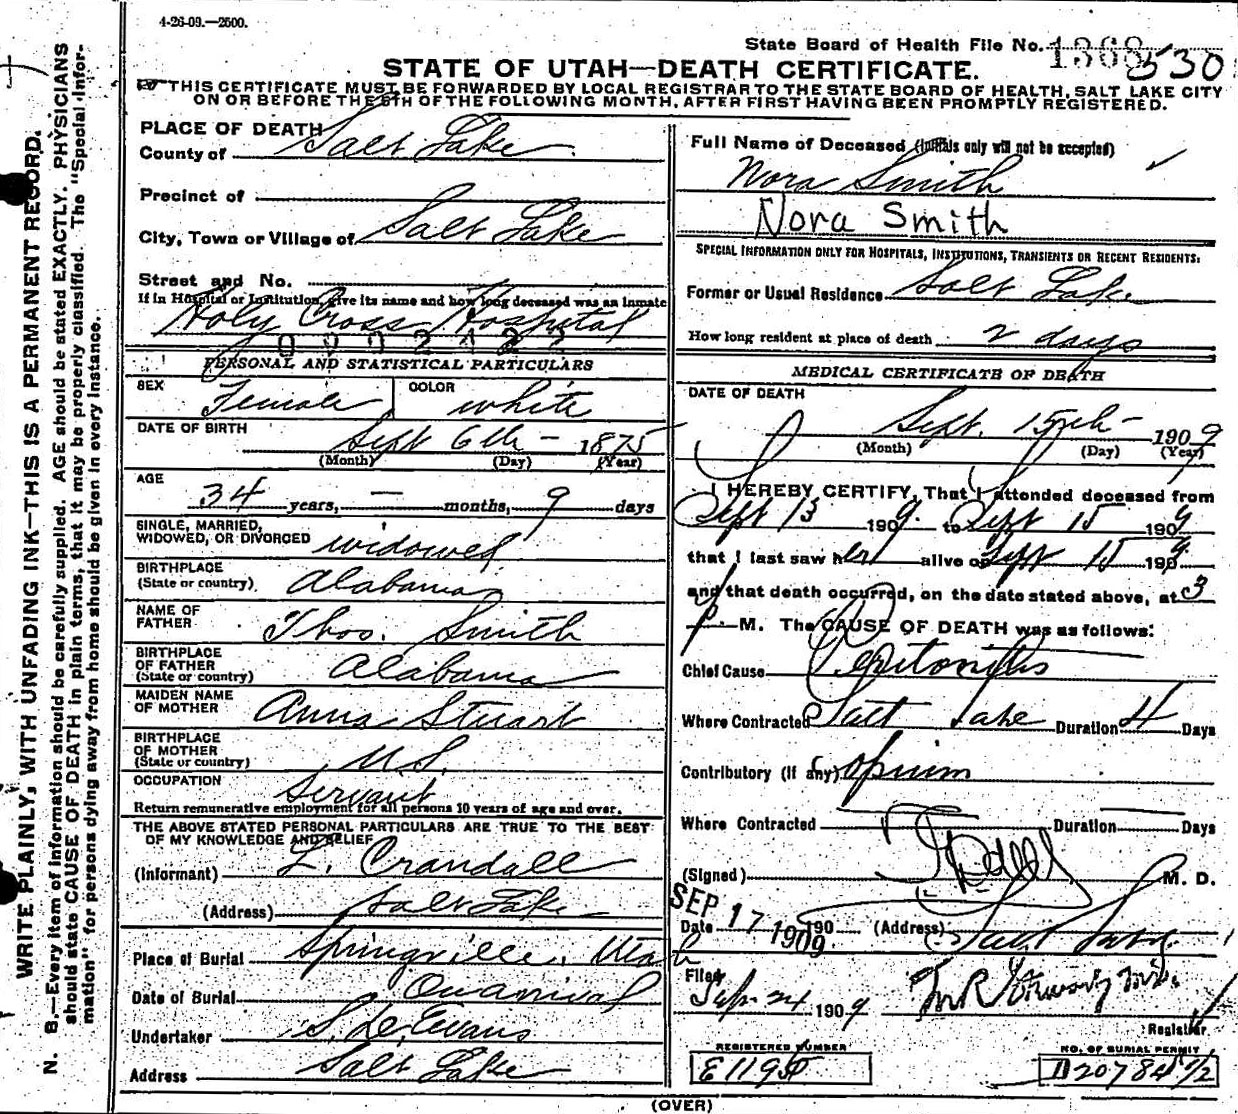 4-26-09.—2500.
State Board of Health File No. 1368 530
STATE OF UTAH—DEATH CERTIFICATE.
THIS CERTIFICATE MUST BE FORWARDED BY LOCAL REGISTRAR TO THE STATE BOARD OF HEALTH, SALT LAKE CITY
ON OR BEFORE THE 5TH OF THE FOLLOWING MONTH, AFTER FIRST HAVING BEEN PROMPTLY REGISTERED.
WRITE PLAINLY, WITH UNFADING INK—THIS IS A PERMANENT RECORD.
N. B.—Every item of information should be carefully supplied. AGE should be stated EXACTLY. PHYSICIANS
should state CAUSE OF DEATH in plain terms, that it may be properly classified. The "Special Infor-
mation" for persons dying away from home should be given in every instance.
PLACE OF DEATH
County of Salt Lake
Precinct of
City, Town or Village of Salt Lake
Street and No.
If in Hospital or Institution, give its name and how long deceased was an inmate
Holy Cross Hospital
PERSONAL AND STATISTICAL PARTICULARS
SEX Female COLOR white
DATE OF BIRTH
Sept 6th — 1875
(Month) (Day) (Year)
AGE
34 years, — months, 9 days
SINGLE, MARRIED,
WIDOWED, OR DIVORCED widowed
BIRTHPLACE
(State or country) Alabama
NAME OF
FATHER Thos. Smith
BIRTHPLACE
OF FATHER
(State or country) Alabama
MAIDEN NAME
OF MOTHER Anna Stuart
BIRTHPLACE
OF MOTHER
(State or country) U.S.
OCCUPATION Servant
Return remunerative employment for all persons 10 years of age and over.
THE ABOVE STATED PERSONAL PARTICULARS ARE TRUE TO THE BEST
OF MY KNOWLEDGE AND BELIEF
(Informant) L. Crandall
(Address) Salt Lake
Place of Burial Springville, Utah
Date of Burial On arrival
Undertaker S. D. Evans
Address Salt Lake
Full Name of Deceased (Initials only will not be accepted)
Nora Smith
Nora Smith
SPECIAL INFORMATION ONLY FOR HOSPITALS, INSTITUTIONS, TRANSIENTS OR RECENT RESIDENTS:
Former or Usual Residence Salt Lake
How long resident at place of death 2 days
MEDICAL CERTIFICATE OF DEATH
DATE OF DEATH
Sept. 15th — 1909
(Month) (Day) (Year)
I HEREBY CERTIFY, That I attended deceased from
Sept 13 1909. to Sept 15 1909
that I last saw her alive on Sept 15 1909
and that death occurred, on the date stated above, at 3
p. M. The CAUSE OF DEATH was as follows:
Chief Cause Peritonitis
Where Contracted Salt Lake Duration 4 Days
Contributory (if any) Opium
Where Contracted — Duration — Days
(Signed) M. D.
SEP 17 1909
Date 190 (Address) Salt Lake
Filed Sep. 24 1909
Registrar
REGISTERED NUMBER
NO. OF BURIAL PERMIT
D 20784 1/2
(OVER)